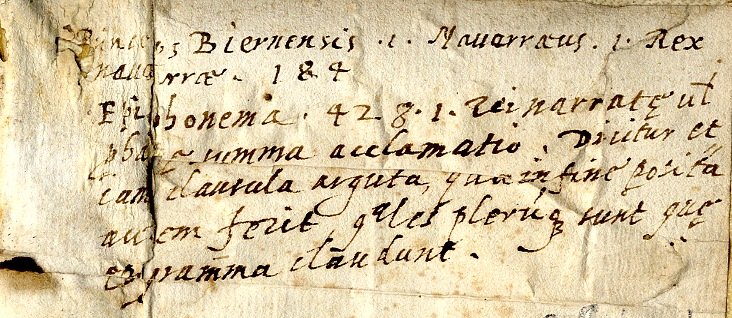 Princeps Biernensis .i. Navarræus .i. Rex
navarræ. 184
Epiphonema. 428.1. Rei narratę ul
summa acclamatio. Dicitur et
iam clausula arguta, quæ in fine posita
aurem ferit, q̃les plerūq; sunt quę
epigram̃ma claudunt.